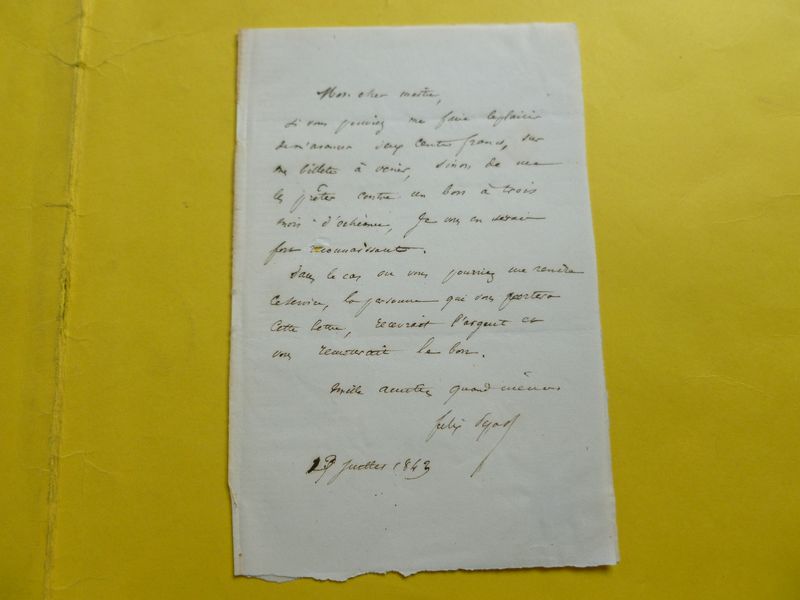 Mon cher maitre,
Si vous pouviez me faire le plaisir
de m'avancer deux cents francs, sur
me billets à venir, sinon de me
les prêter contre un bon à trois
mois d'échéance, je vous en serais
fort reconnaissant.
Dans le cas ou vous pourriez me rendre
ce service, la personne qui vous portera
cette lettre, recevrait l'argent et
vous remettrait le bon.
Mille amitiés quand même
felix Pyat
13 juillet 1843